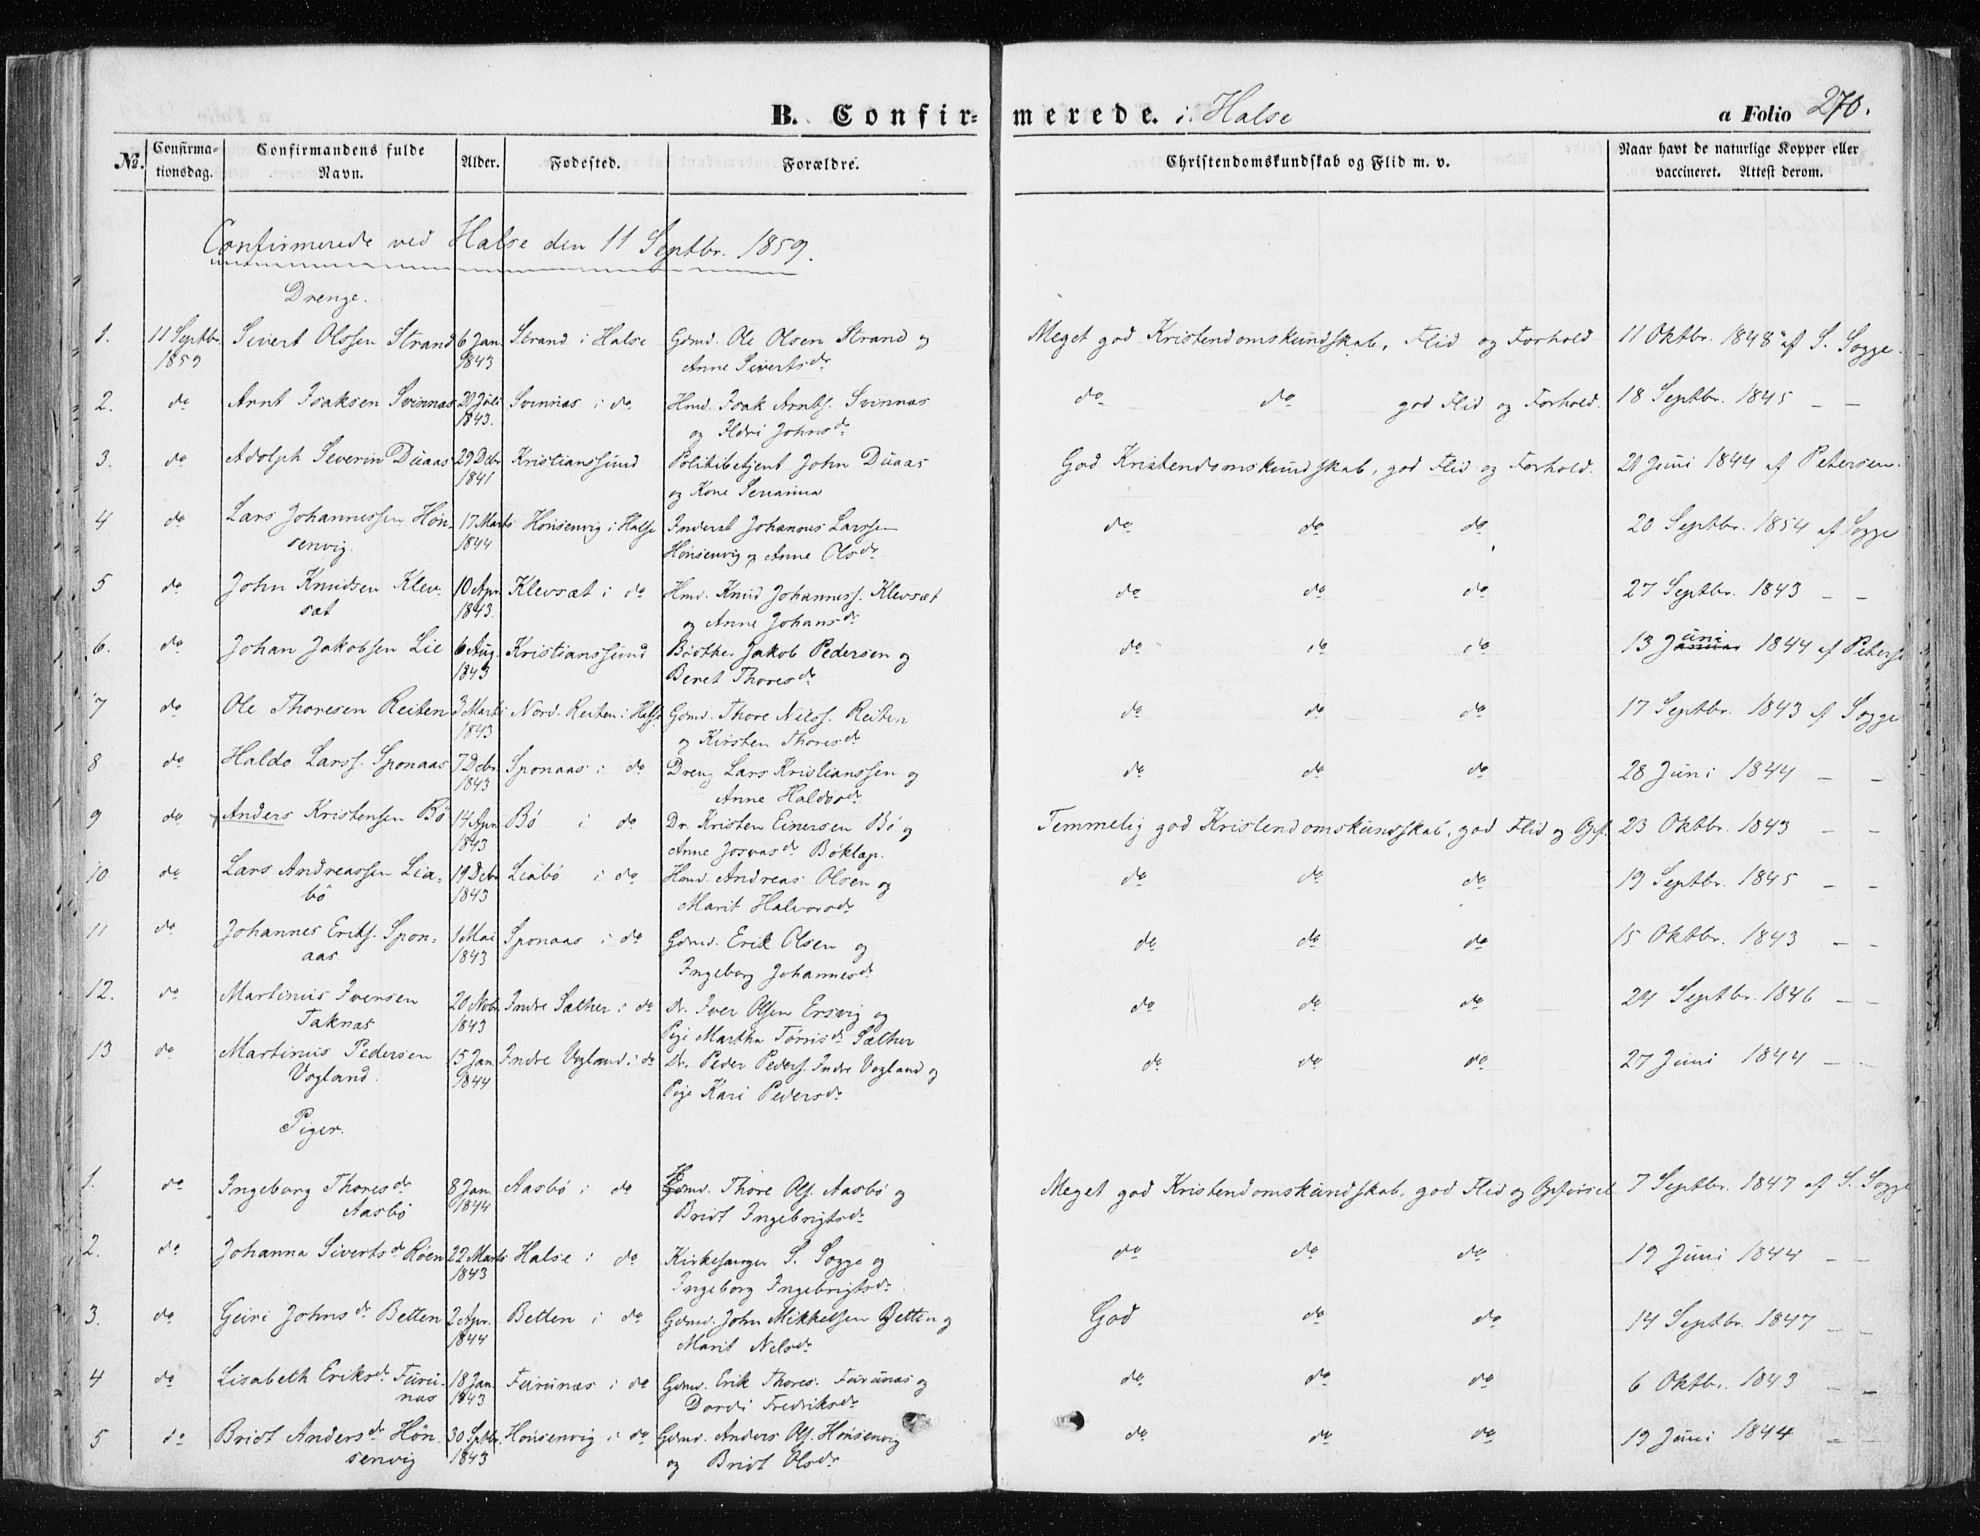 B. Confirmerede. i Halse
a Folio 270.
No. Confirmationsdag. Confirmandens fulde Navn. Alder. Fødested. Forældre. Christendomskundskab og Flid m. v. Naar havt de naturlige Kopper eller vaccineret. Attest derom.
Confirmerede ved Halse den 11 Septbr. 1859.
Drenge.
1. 11 Septbr. Sivert Olssen Strand 6 Jan. Strand i Halse Gdmd. Ole Olsen Strand og Meget god Kristendomskundskab, Flid og Forhold 11 Oktbr. 1848 af S. Sogge.
1859 1843 Anne Sivertsdr
2. do Arnt Isaksen Svinnas 20 Juli Svinnas i do Hmd. Isak Arnts. Svinnas do do god Flid og Forhold. 18 Septbr. 1845 – –
1843. og Ildri Johnsdr
3. do Adolph Severin Duaas 29 Dcbr Kristianssund Politibetjent John Duaas God Kristendomskundskab, god Flid og Forhold. 21 Juni 1844 af Petersen.
1841 og Kone
4 do Lars Johannessen Høn- 17 Marts Hønsenvig i Halse Inderst Johannes Larssen do do do 20 Septbr. 1854 af Sogge
senvig. 1844 Hønsenvig og Anne Olsdr
5 do John Knudsen Klev- 10 Apr. Klevsæt i do Hmd. Knud Johanness. Klevsæt do do do 27 Septbr. 1843 – –
sæt 1843. og Anne Johansdr
6. do Johan Jakobsen Lie 6 Aug. Kristianssund Jakob Pedersen og do do do 13 Juni 1844 af Peters
1843 Beret Thoresdr
7 do Ole Thoresen Reiten 3 Marts Nord. Reiten i Halse Gdmd. Thore Nilss. Reiten do do do 17 Septbr. 1843 af Sogge
1843 og Kirsten Thoresdr
8 do Haldo Larss. Sponaas 7 Dcbr. Sponaas i do Dreng Lars Kristianssen og do do do 28 Juni 1844 – –
1843 Anne Haldorsdr
9 do Anders Kristensen Bø 14 Apr. Bø i do Dr. Kristen Einersen Bø og Temmelig god Kristendomskundskab, god Flid og Opf. 23 Oktbr. 1843 – –
1843 Anne Josvasdr Bøklep.
10 do Lars Andreassen Lia- 19 Dcbr Liabø i do Hmd. Andreas Olsen og do do do 19 Septbr. 1845 – –
bø 1843 Marit Halvorsdr
11 do Johannes Eriks. Spon- 1 Mai Sponaas i do Gdmd. Erik Olsen og do do do 15 Oktbr. 1843 – –
aas 1843 Ingeborg Johannesdr
12. do Martinus Iversen 20 Novbr. Indre Sæther i do Dr. Iver Olsen Ersvig og do do do 24 Septbr. 1846 – –
Taknæs 1843 Pige Martha Tørrisdr Sæther
13 do Martinus Pedersen 15 Jan. Indre Vogland i do Dr. Peder Peders. Indre Vogland og do do do 27 Juni 1844 – –
Vogland. 1844 Pige Kari Pedersdr
Piger.
1. do Ingeborg Thoresdr 8 Jan. Aasbø i do Hmd. Thore Ols. Aasbø og Meget god Kristendomskundskab, god Flid og Opførsel 7 Septbr. 1847 af S. Sogge
Aasbø 1844 Bridt Ingebrigtsdr
2. do Johanna Sivertsdr Røen 22 Marts Halse i do Kirkesanger S. Sogge og do do do 19 Juni 1844 – –
1843 Ingeborg Ingebrigtsdr.
3. do Guri Johnsdr Betten 2 Apr. Betten i do Gdmd. John Mikkelsen Betten og God do do 14 Septbr. 1847 – –
1844 Marit Nilsdr
4 do Lisabeth Eriksdr Furu- 18 Jan. Furunæs i do Gdmd. Erik Thores. Furunæs og do do do 6 Oktbr. 1843 – –
næs 1843 Dordi Fredriksdr
5 do Bridt Andersdr Høn- 30 Septbr. Hønsenvig i do Gdmd. Anders Ols. Hønsenvig do do do 19 Juni 1844 – –
senvig 1843 og Bridt Olsdr